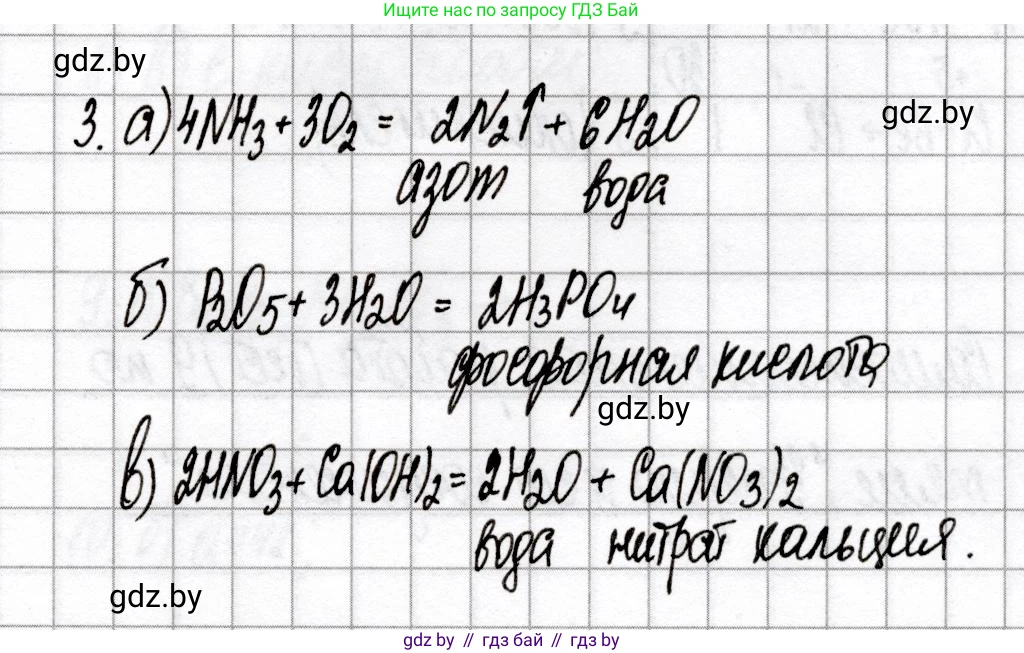 Ищите нас по запросу ГДЗ Бай
gdz.by
3. а) 4NH3 + 3O2 = 2N2↑ + 6H2O
gdz.by
азот вода
б) P2O5 + 3H2O = 2H3PO4
фосфорная кислота
gdz.by
в) 2HNO3 + Ca(OH)2 = 2H2O + Ca(NO3)2
вода нитрат кальция.
gdz.by
gdz.by // гдз бай // гдз by